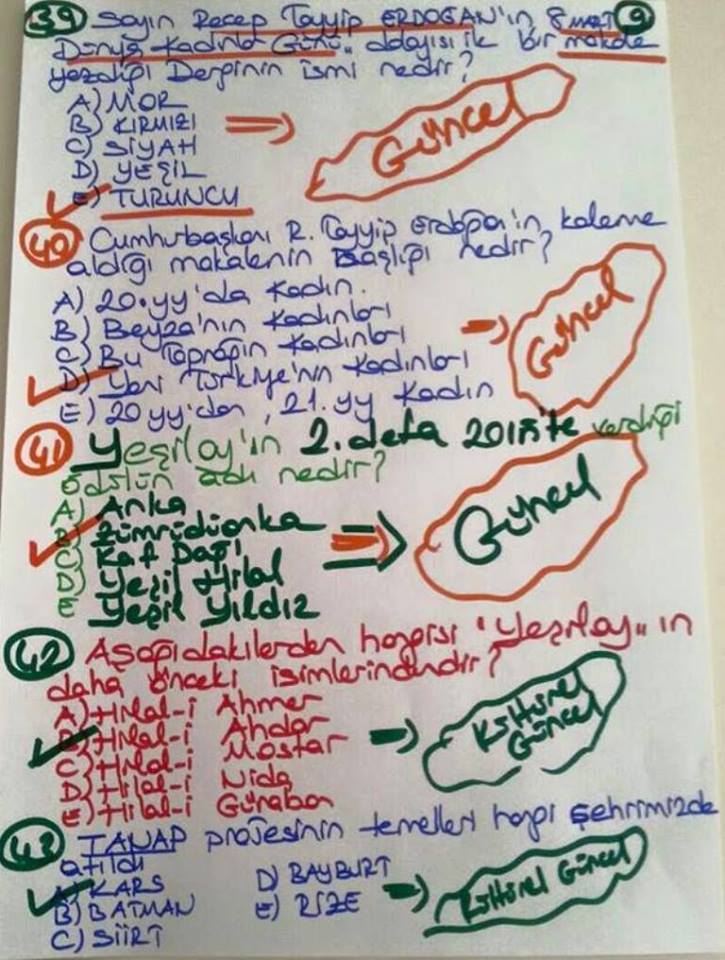 39 Sayın Recep Tayyip ERDOĞAN'ın 8 MART 9
Dünya Kadınlar Günü,, dolayısı ile bir makale
yazdığı Derginin ismi nedir?
A) MOR
B) KIRMIZI
C) SİYAH
D) YEŞİL
E) TURUNCU
Güncel
40 Cumhurbaşkanı R. Tayyip Erdoğan'ın kaleme
aldığı makalenin Başlığı nedir?
A) 20.yy'da Kadın.
B) Beyza'nın Kadınları
C) Bu Toprağın Kadınları
D) Yeni Türkiye'nin Kadınları
E) 20 yy'dan, 21. yy Kadın
Güncel
41 Yeşilay'ın 2. defa 2015'te verdiği
ödülün adı nedir?
A) Anka
B) Zümrüdüanka
C) Kaf Dağı
D) Yeşil Hilal
E Yeşil Yıldız
Güncel
42 Aşağıdakilerden hangisi "Yeşilay,,ın
daha önceki isimlerindendir?
A) Hilal-i Ahmer
B) Hilal-i Ahdar
C) Hilal-i Mostar
D) Hilal-i Nida
E) Hilal-i Guraba
Kültürel
Güncel
43 TANAP projesinin temelleri hangi şehrimizde
atıldı
A) KARS
B) BATMAN
C) SİİRT
D) BAYBURT
E) RİZE
Kültürel Güncel